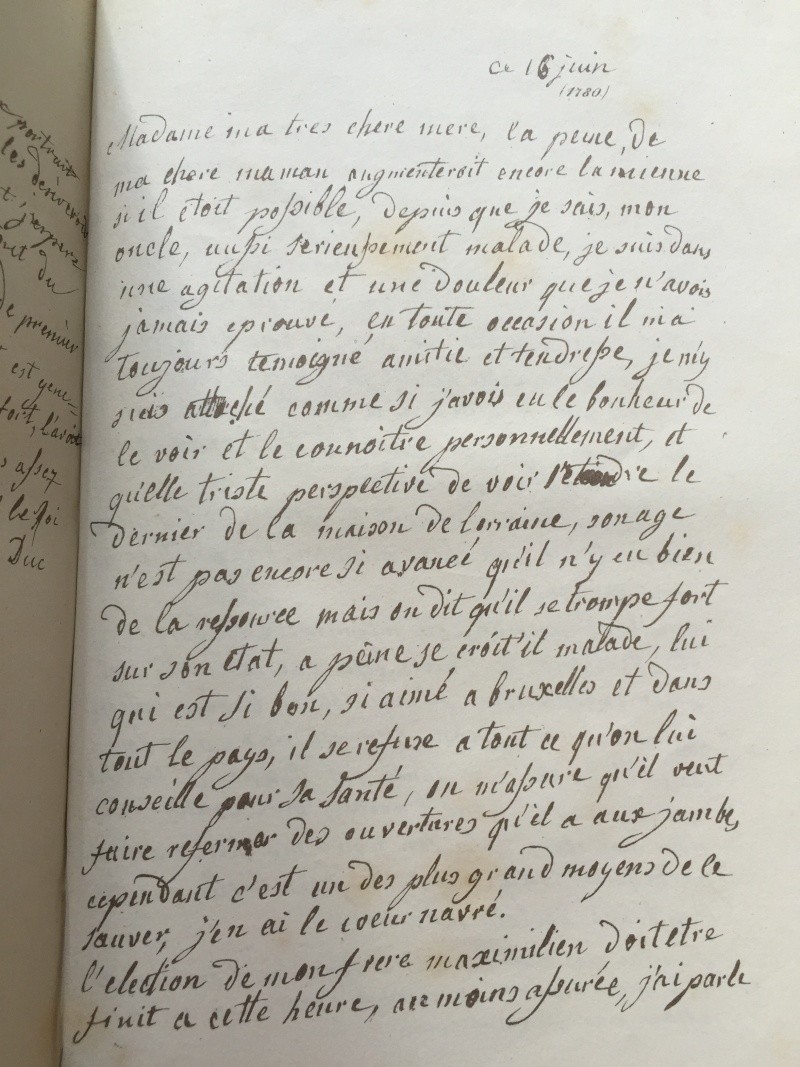 portrait
les
j'espere
du
de premier
est gene-
fort, l'avoit
assez
le foi
Duc
ce 16 juin
(1780)
Madame ma tres chere mere, la peine, de
ma chere maman augmenteroit encore la mienne
si il étoit possible, depuis que je sais, mon
oncle, aussi serieussement malade, je suis dans
une agitation et une douleur que je n'avois
jamais eprouvé, en toute occasion il m'a
toujours temoigné amitie et tendresse, je m'y
suis attaché comme si j'avois eu le bonheur de
le voir et le connoitre personnellement, et
qu'elle triste perspective de voir l'etendre le
dernier de la maison de lorraine, son age
n'est pas encore si avancé qu'il n'y eu bien
de la ressource mais on dit qu'il se trompe fort
sur son état, a pêine se croit'il malade, lui
qui est si bon, si aimé a bruxelles et dans
tout le pays, il se refuse a tout ce qu'on lui
conseille pour sa santé, on m'assure qu'il veut
faire refermer des ouvertures qu'il a aux jambes,
cependant c'est un des plus grand moyens de le
sauver, j'en ai le coeur navré.
l'election de mon frere maximilien doit etre
finit a cette heure, au moins assurée, j'ai parlé